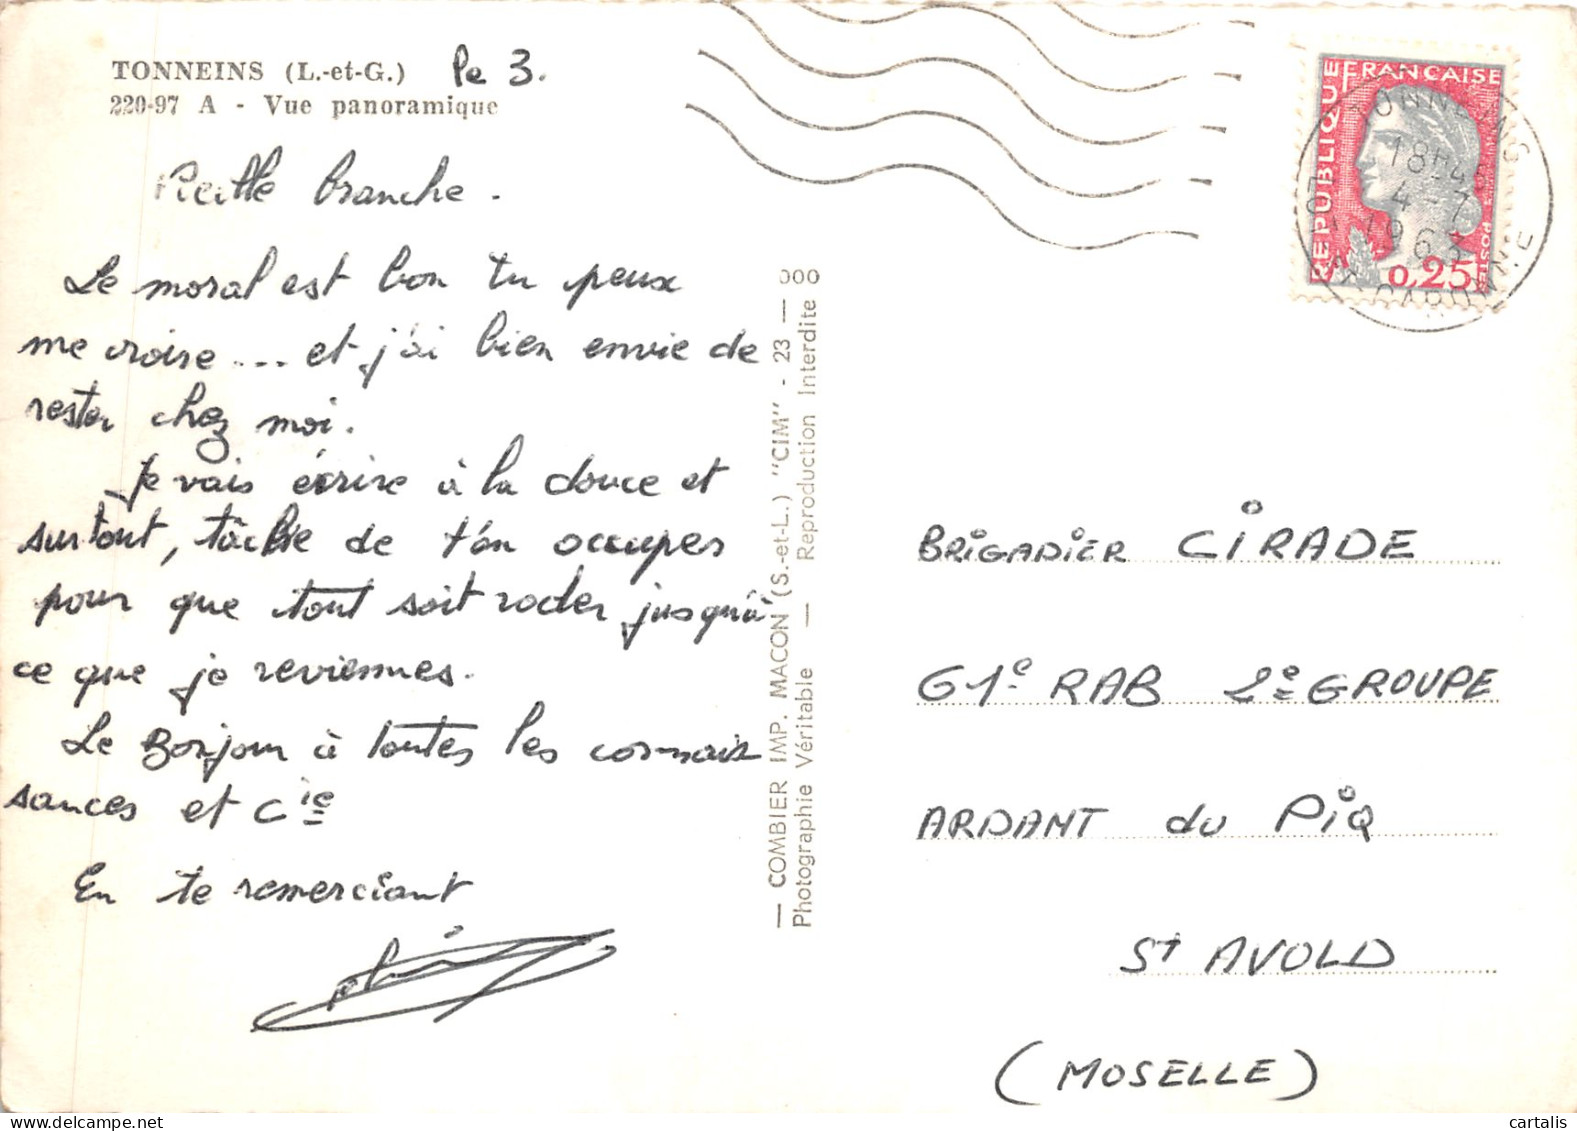 TONNEINS (L.-et-G.) le 3.
220-97 A - Vue panoramique
Vieille branche.
Le moral est bon tu peux
me croire ... et j'ai bien envie de
rester chez moi.
Je vais écrire à la douce et
surtout, tâche de t'en occuper
pour que tout soit roder jusqu'à
ce que je reviennes.
Le Bonjour à toutes les connais
sances et Cie
En te remerciant
— COMBIER IMP. MACON (S.-et-L.) "CIM" - 23 —
Photographie Véritable — Reproduction Interdite
REPUBLIQUE FRANCAISE
POSTES
0,25
TONNEINS
18H45
4-7
LOT ET GARONNE
BRIGADIER CIRADE
61e RAB 2e GROUPE
ARDANT du PIQ
St AVOLD
(MOSELLE)
cartalis